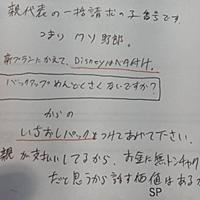 親代表の一括請求の子番号です。
つまり クソ野郎。
新プランにかえて、Disneyはベタ付け。
バックアップめんどくさくないですか?
からの
いちおしパックをつけてあげて下さい。
親が支払いしてるから、お金に無トンチャク
だと思うから話す価値はある
SP